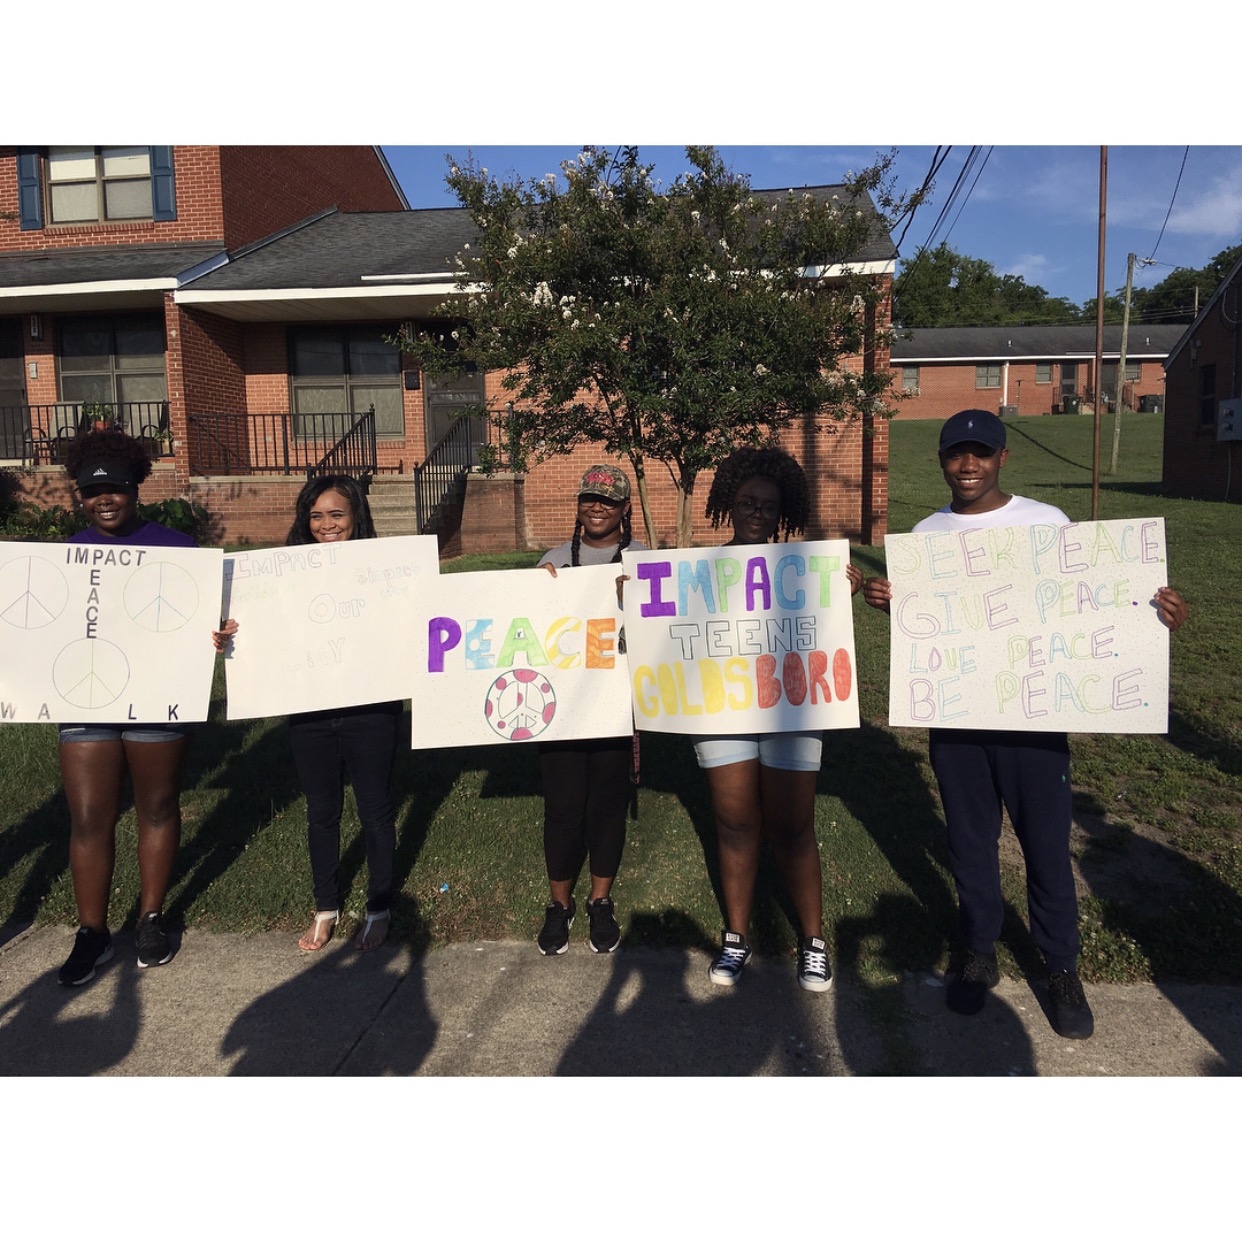 IMPACT
PEACE
WALK
IMPACT
Our
PEACE
IMPACT
TEENS
GOLDSBORO
SEEK PEACE.
GIVE PEACE.
LOVE PEACE.
BE PEACE.